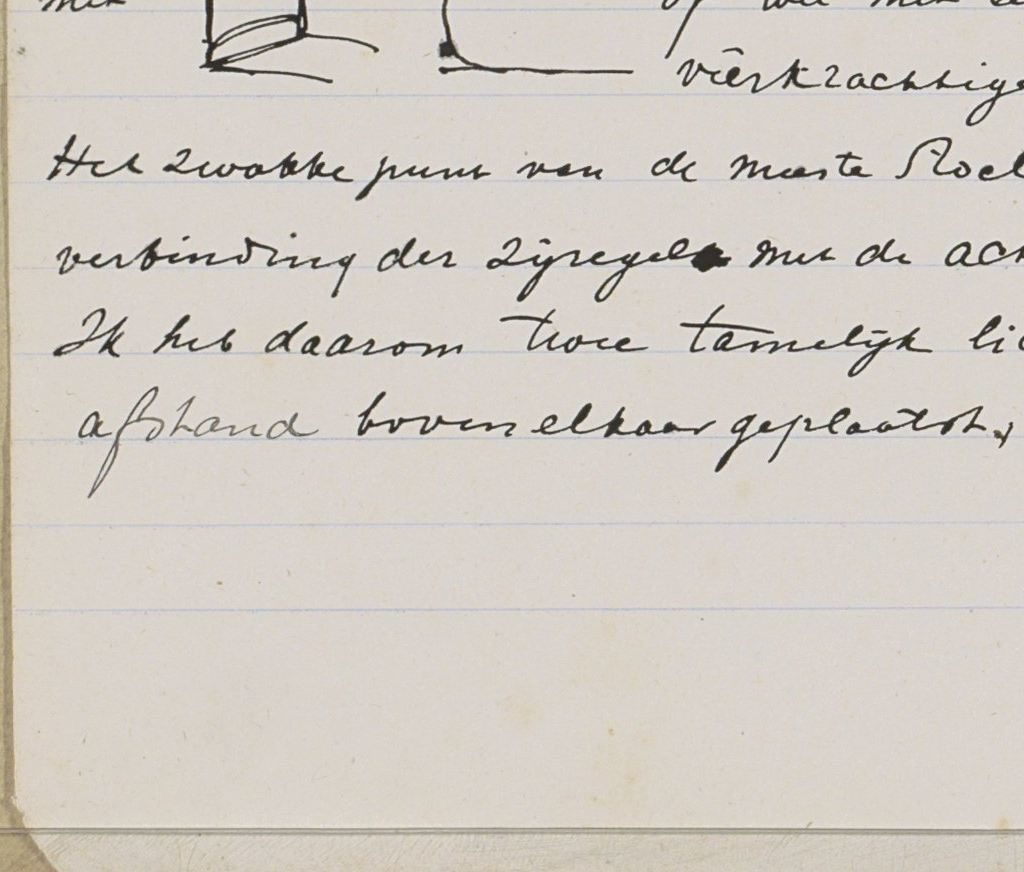 met of wel met
vierkrachtige
Het zwakke punt van de meeste Stoel
verbinding der zijregels met de ach
Ik heb daarom twee tamelijk li
afstand boven elkaar geplaatst,